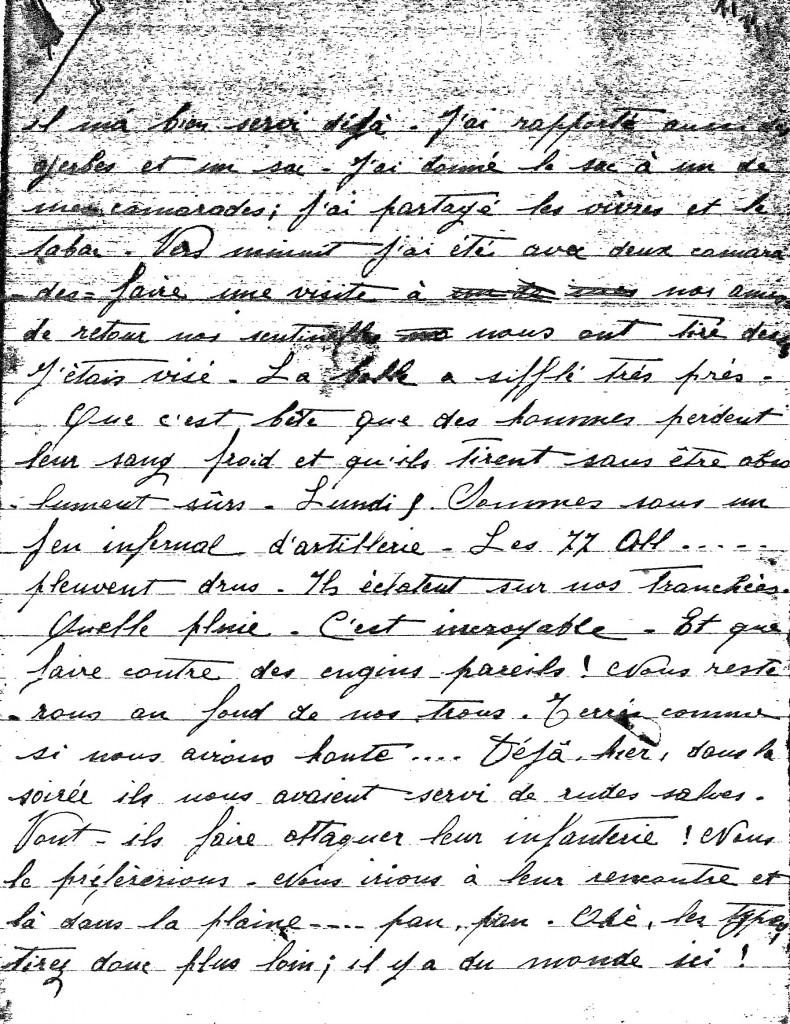 il m'a bien servi déjà - J'ai rapporté aussi des
gerbes et un sac - J'ai donné le sac à un de
mes camarades; j'ai partagé les vivres et le
tabac - Vers minuit j'ai été avec deux camara
- des - faire une visite à nos amis
de retour nos sentinelles nous ont tiré des
J'étais visé - La balle a sifflé très près -
Que c'est bête que des hommes perdent
leur sang froid et qu'ils tirent sans être abso
- lument sûrs - Lundi 9. Sommes sous un
feu infernal d'artillerie - Les 77 All .....
pleuvent drus - Ils éclatent sur nos tranchées.
Quelle pluie - C'est incroyable - Et que
faire contre des engins pareils ! Nous reste
- rons au fond de nos trous - Terrés comme
si nous avions honte .... Déjà, hier, dans la
soirée ils nous avaient servi de rudes salves -
Vont-ils faire attaquer leur infanterie ! Nous
le préfèrerions - Nous irions à leur rencontre et
là dans la plaine .... pan, pan - Ohé, les types,
tirez donc plus loin; il y a du monde ici !